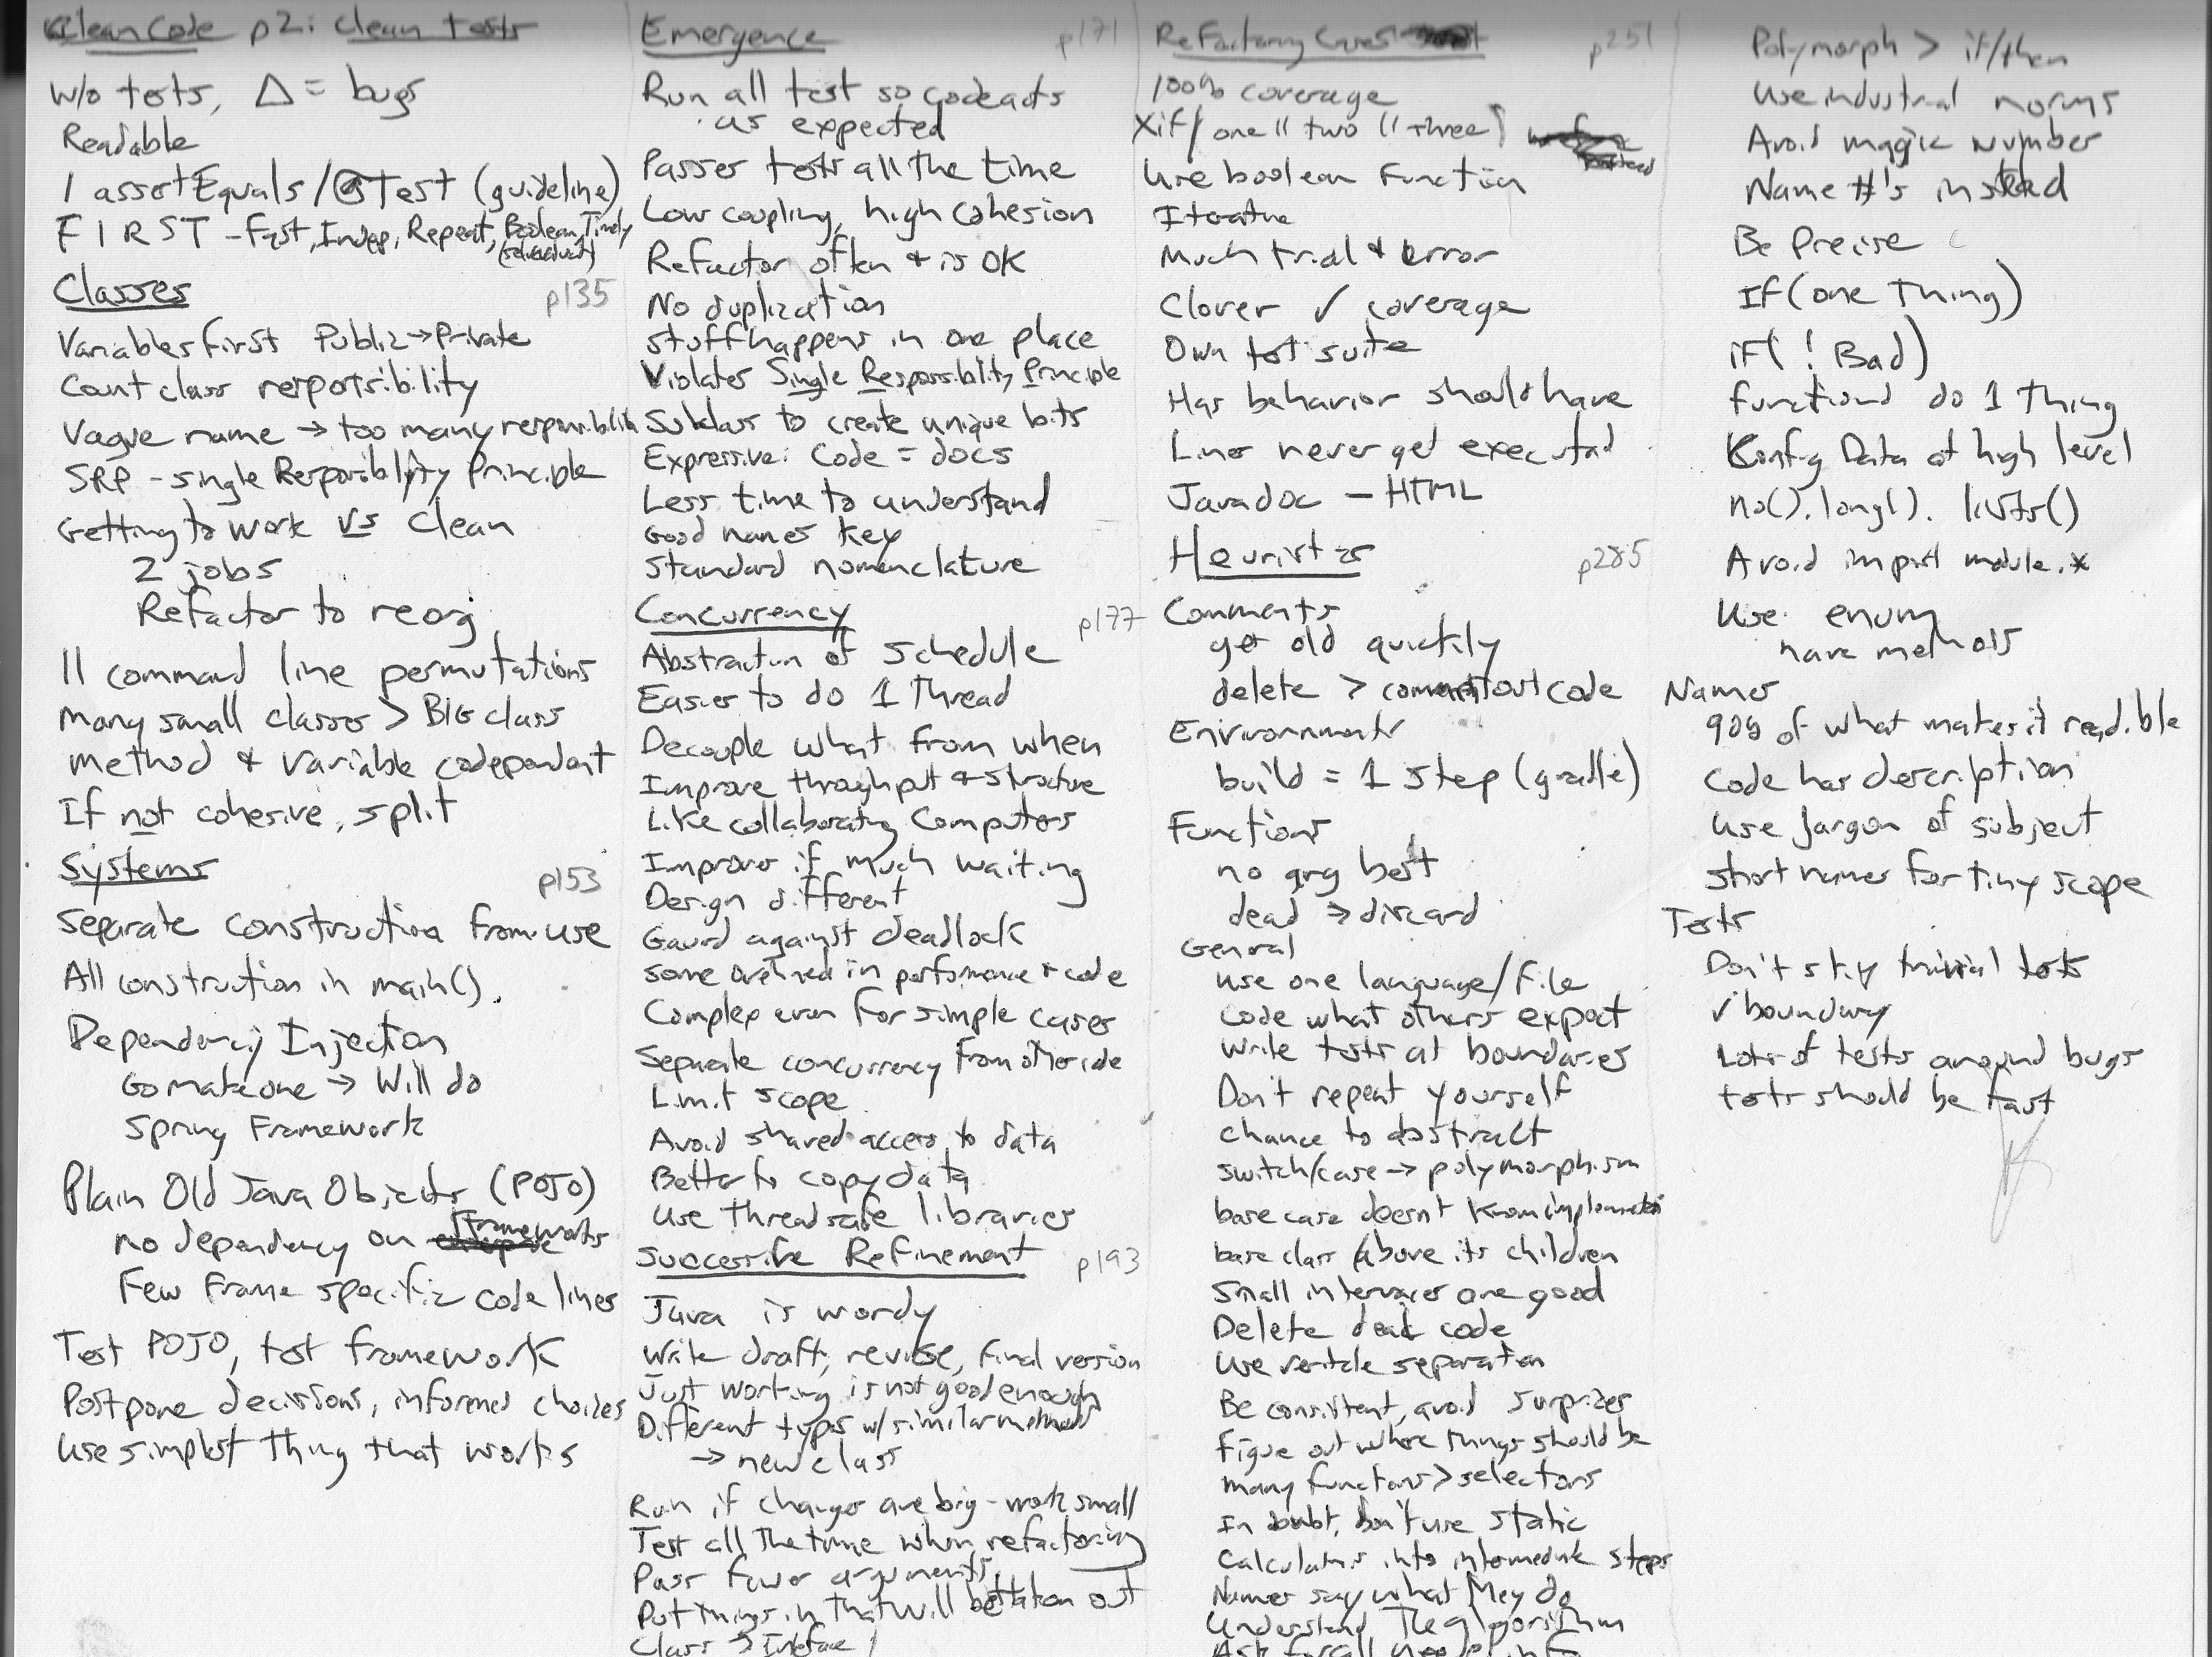 Clean Code p2: Clean tests
w/o tests, Δ = bugs
Readable
1 assertEquals/@Test (guideline)
FIRST - Fast, Indep, Repeat, Boolean, Timely
Classes p135
Variables first Public → Private
Count class responsibility
Vague name → too many responsibility
SRP - Single Responsibility Principle
Getting to work vs Clean
2 jobs
Refactor to reorg
11 command line permutations
Many small classes > BIG class
Method & variable codependant
If not cohesive, split
Systems p153
Separate construction from use
All construction in main().
Dependency Injection
Go make one → Will do
Spring Framework
Plain Old Java Objects (POJO)
no dependency on frameworks
Few frame specific code lines
Test POJO, test framework
Postpone decisions, informed choices
Use simplest thing that works
Emergence p171
Run all test so code acts
as expected
Passes tests all the time
Low coupling, high cohesion
Refactor often & is OK
No duplication
Stuff happens in one place
Violates Single Responsibility Principle
Subclass to create unique bits
Expressive: Code = docs
Less time to understand
Good names key
Standard nomenclature
Concurrency p177
Abstraction of Schedule
Easier to do 1 thread
Decouple what from when
Improve throughput & structure
Like collaborating Computers
Improves if much waiting
Design different
Gaurd against deadlock
Some overhead in performance & code
Complex even for simple cases
Separate concurrency from other code
Limit scope
Avoid shared access to data
Better to copy data
Use thread safe libraries
Successive Refinement p193
Java is wordy
Write draft, revise, final version
Just working is not good enough
Different types w/ similar methods
→ new class
Run if changes are big - work small
Test all the time when refactoring
Pass fewer arguments
Put things in that will be taken out
Class → Interface
Refactoring p251
100% coverage
X if( one || two || three)
Use boolean function
Iterative
Much trial & error
Clover ✓ coverage
Own test suite
Has behavior should have
Lines never get executed
Javadoc - HTML
Heuristics p285
Comments
get old quickly
delete > comment out code
Environments
build = 1 step (gradle)
Functions
no arg best
dead → discard
General
Use one language/file
Code what others expect
Write tests at boundaries
Don't repeat yourself
chance to abstract
switch/case → polymorphism
base case doesn't know implementation
base class above its children
Small interfaces are good
Delete dead code
Use verticle separation
Be consistent, avoid surprizes
Figure out where things should be
Many functions > selectors
In doubt, don't use static
Calculations into intermediate steps
Names say what they do
Understand the algorithm
Polymorph > if/then
Use industrial norms
Avoid magic number
Name #'s instead
Be Precise
If (one thing)
if( ! Bad)
functions do 1 thing
Config Data at high level
no().long().lists()
Avoid import module.*
Use enum
have methods
Names
90% of what makes it readible
Code has description
Use jargon of subject
Short names for tiny scope
Tests
Don't skip trivial tests
✓ boundary
Lots of tests around bugs
tests should be fast